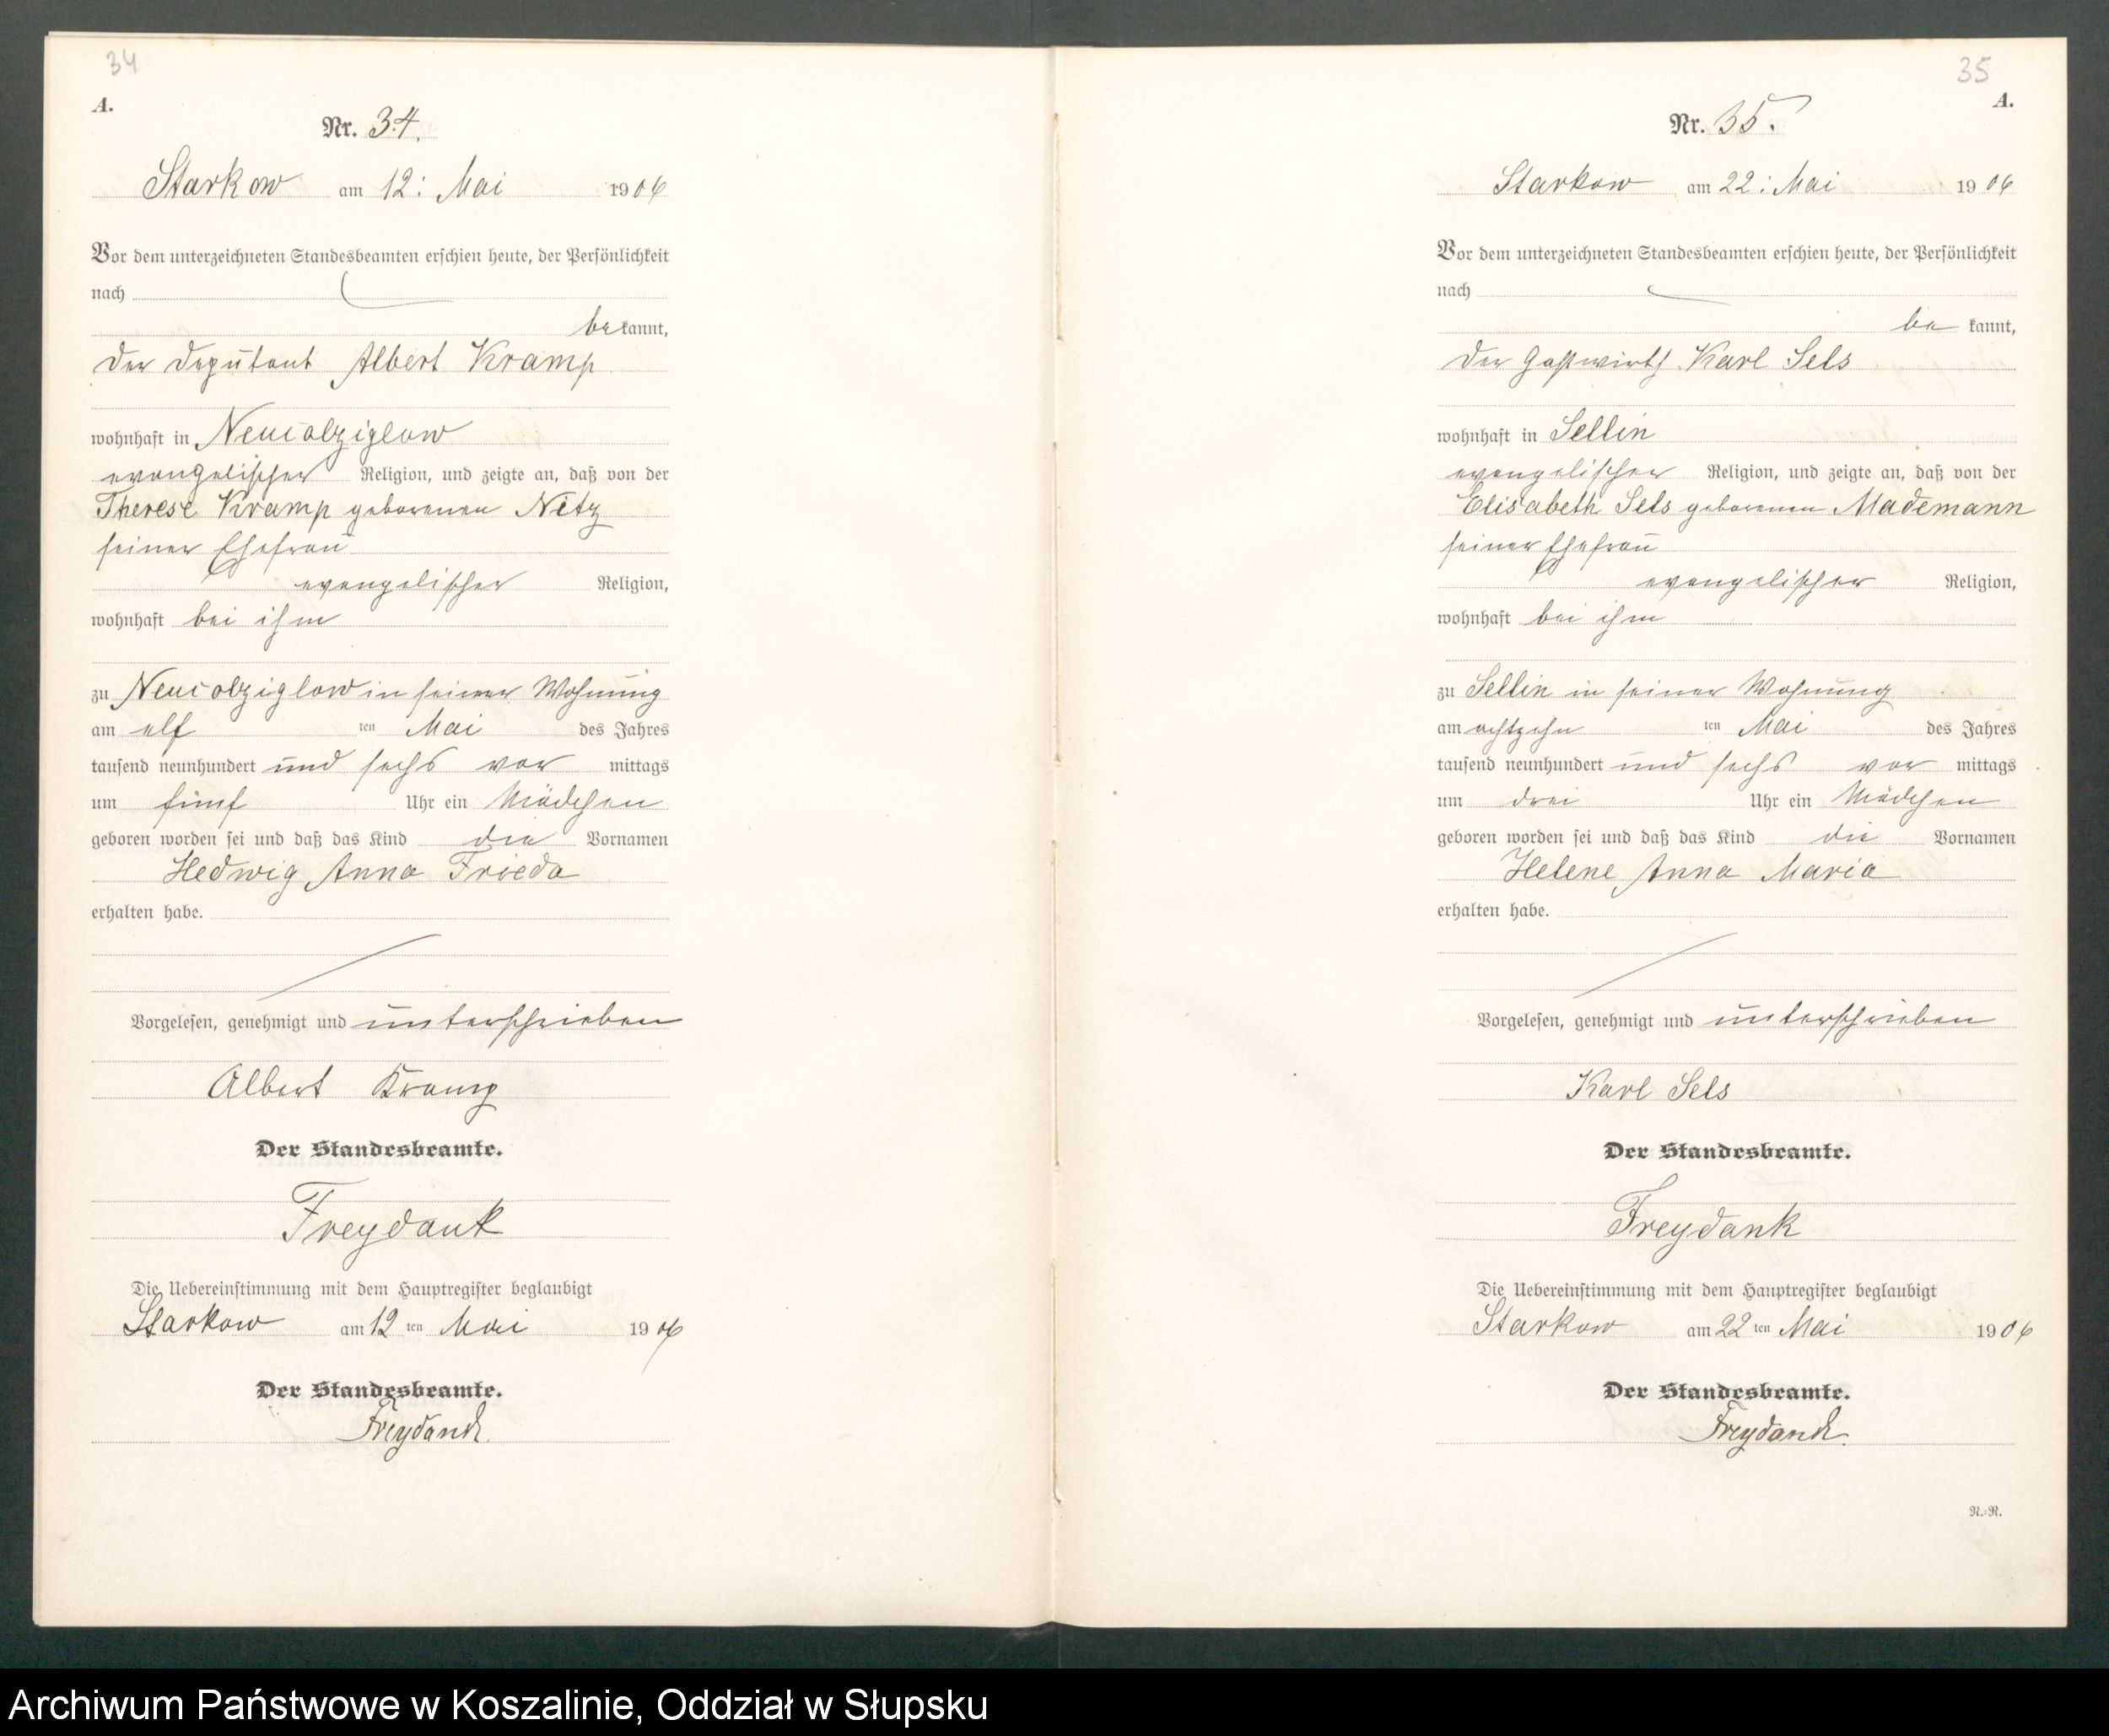 34
A.
Nr. 34.
Starkow am 12: Mai 1906
Vor dem unterzeichneten Standesbeamten erschien heute, der Persönlichkeit
nach
bekannt,
der Deputant Albert Kramp
wohnhaft in Neucolziglow
evangelischer Religion, und zeigte an, daß von der
Therese Kramp geborenen Nitz
seiner Ehefrau
evangelischer Religion,
wohnhaft bei ihm
zu Neucolziglow in seiner Wohnung
am elf ten Mai des Jahres
tausend neunhundert und sechs vor mittags
um fünf Uhr ein Mädchen
geboren worden sei und daß das Kind die Vornamen
Hedwig Anna Frieda
erhalten habe.
Vorgelesen, genehmigt und unterschrieben
Albert Kramp
Der Standesbeamte.
Freydank
Die Uebereinstimmung mit dem Hauptregister beglaubigt
Starkow am 12 ten Mai 1906
Der Standesbeamte.
Freydank.
35
A.
Nr. 35.
Starkow am 22: Mai 1906
Vor dem unterzeichneten Standesbeamten erschien heute, der Persönlichkeit
nach
be kannt,
der Gastwirth Karl Sels
wohnhaft in Sellin
evangelischer Religion, und zeigte an, daß von der
Elisabeth Sels geborenen Mademann
seiner Ehefrau
evangelischer Religion,
wohnhaft bei ihm
zu Sellin in seiner Wohnung
am achtzehn ten Mai des Jahres
tausend neunhundert und sechs vor mittags
um drei Uhr ein Mädchen
geboren worden sei und daß das Kind die Vornamen
Helene Anna Maria
erhalten habe.
Vorgelesen, genehmigt und unterschrieben
Karl Sels
Der Standesbeamte.
Freydank
Die Uebereinstimmung mit dem Hauptregister beglaubigt
Starkow am 22 ten Mai 1906
Der Standesbeamte.
Freydank.
N.-R.
Archiwum Państwowe w Koszalinie, Oddział w Słupsku